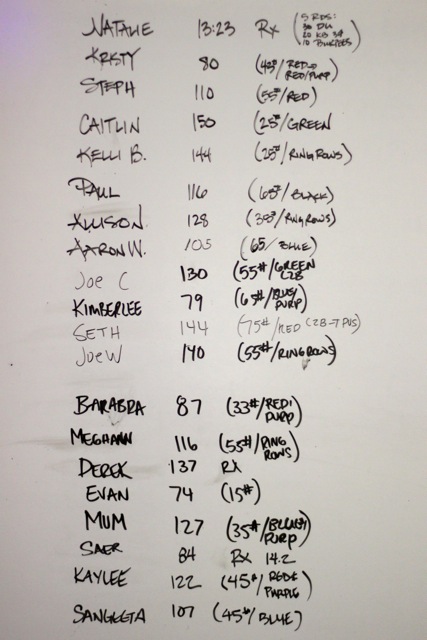 NATALIE 13:23 RX (5 RDS: 30 DU 20 KB 10 BURPEES
KRSTY 80 (42#/RED+ RED/PURP)
STEPH 110 (55#/RED)
CAITLIN 150 (25#/GREEN
KELLI B. 144 (25#/RING ROWS)
PAUL 116 (65#/BLACK)
ALLISON 128 (35#/RING ROWS)
AARON W. 105 (65/BLUE)
JOE C 130 (55#/GREEN
KIMBERLEE 79 (65#/BLUE/ PURP)
SETH 144 (75#/RED
JOE W 140 (55#/RING ROWS)
BARABRA 87 (33#/RED/ PURP)
MEGHANN 116 (55#/RING ROWS)
DEREK 137 RX
EVAN 74 (15#)
MUM 127 (35#/BLUE/ PURP)
SAER 84 RX 14.2
KAYLEE 122 (45#/RED& PURPLE)
SANGEETA 107 (45#/BLUE)